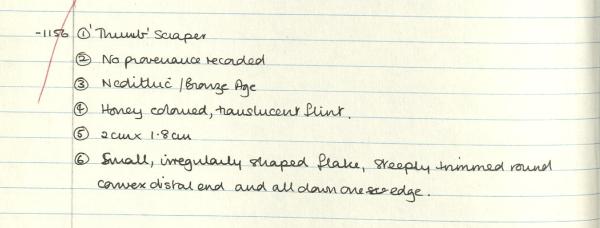 -1156 ① 'Thumb' Scraper
② No provenance recorded
③ Neolithic / Bronze Age
④ Honey coloured, translucent flint.
⑤ 2cm x 1.8cm
⑥ Small, irregularly shaped flake, steeply trimmed round
convex distal end and all down one edge.